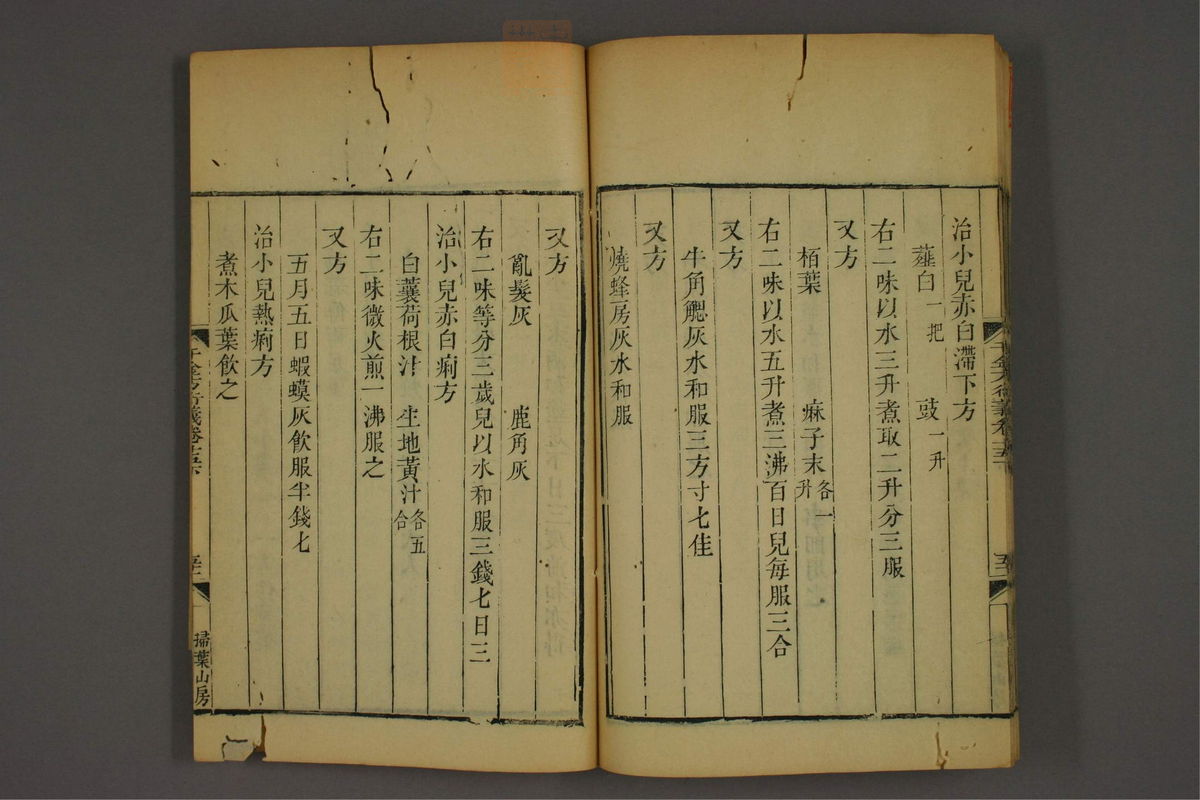 治小兒赤白滯下方
薤白一把 豉一升
右二味以水三升煮取二升分三服
又方
栢葉 麻子末各一升
右二味以水五升煮三沸百日兒每服三合
又方
牛角䚡灰水和服三方寸匕佳
又方
燒蜂房灰水和服
又方
亂髮灰 鹿角灰
右二味等分三歲兒以水和服三錢匕日三
治小兒赤白痢方
白蘘荷根汁 生地黃汁各五合
右二味微火煎一沸服之
又方
五月五日蝦蟆灰飲服半錢匕
治小兒熱痢方
煮木瓜葉飲之
千金方衍義卷十五下
掃葉山房